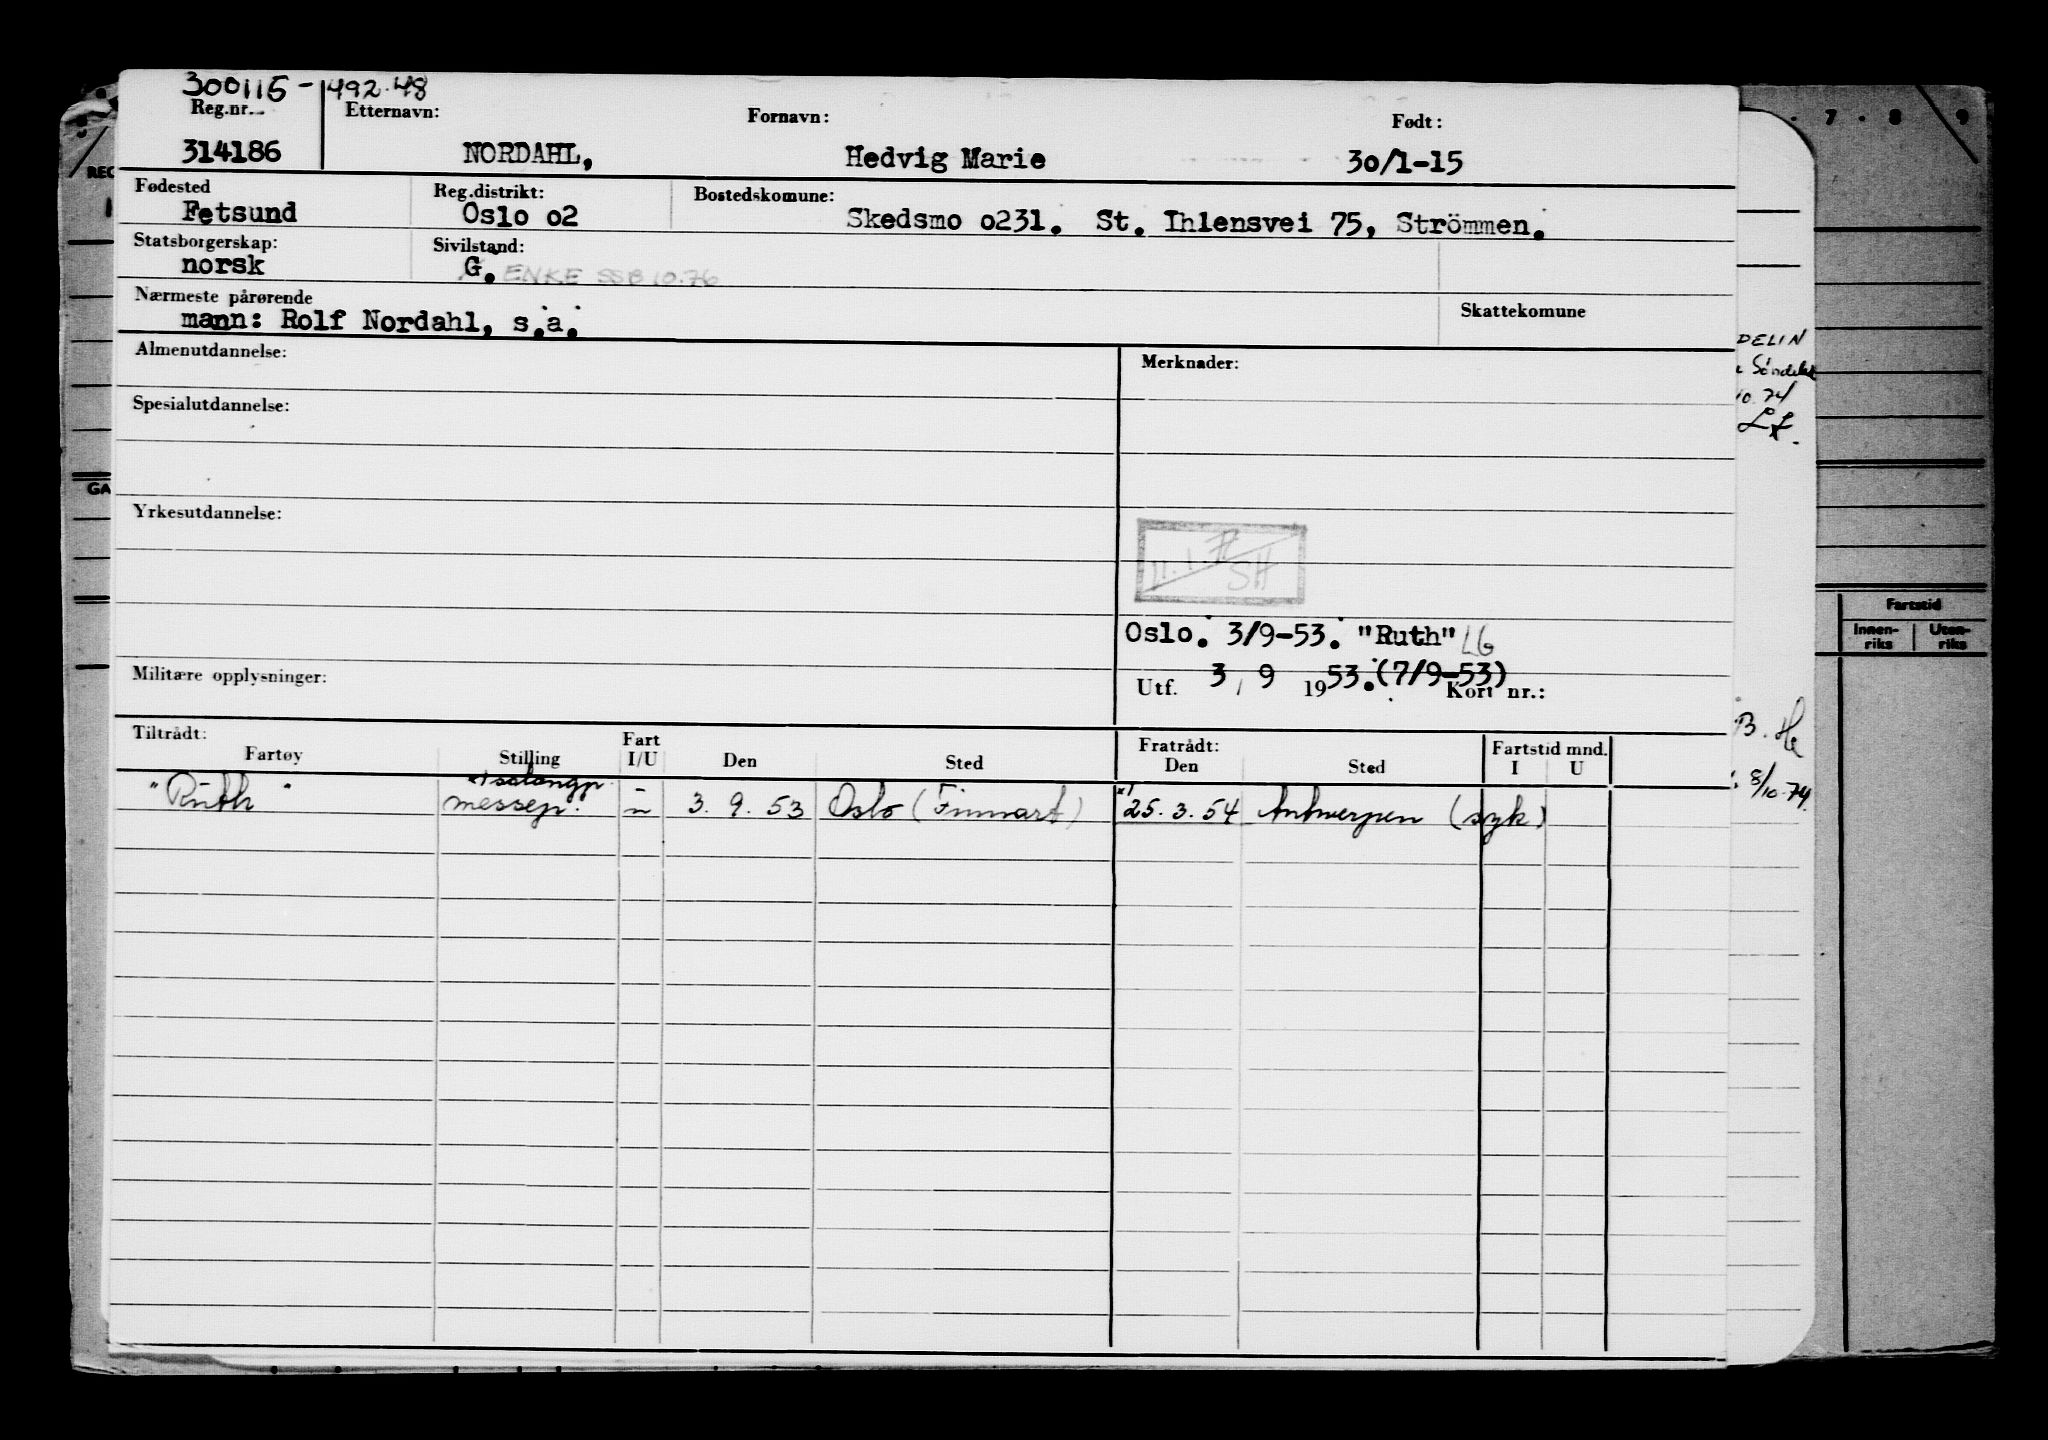 300115-492.48
Reg.nr. Etternavn: Fornavn: Født:
314186 NORDAHL, Hedvig Marie 30/1-15
Fødested Reg.distrikt: Bostedskomune:
Fetsund Oslo o2 Skedsmo o231. St. Ihlensvei 75, Strömmen.
Statsborgerskap: Sivilstand:
norsk G. ENKE SSB 10.76
Nærmeste pårørende Skattekomune
mann: Rolf Nordahl, s.a.
Almenutdannelse: Merknader:
Spesialutdannelse:
Yrkesutdannelse:
SH
Oslo. 3/9-53. "Ruth" LG
Militære opplysninger: Utf. 3 / 9 1953.(7/9-53) Kort nr.:
Tiltrådt: Fratrådt: Fartstid mnd.
Fartøy Stilling Fart I/U Den Sted Den Sted I U
x) salongp.
"Ruth" messep. u 3. 9. 53 Oslo (Finnart) x) 25. 3. 54 Antwerpen (syk)
REG
GA
7 . 8 9
DELIN
10.74
B. He
8/10-74.
Fartstid
Innen-riks Uten-riks